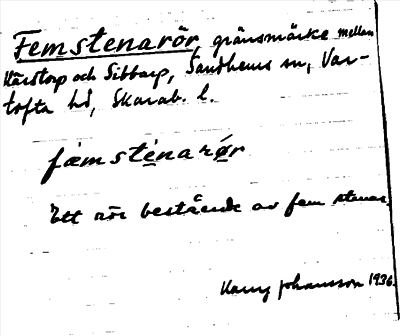 Femstenarör, gränsmärke mellan
Kärstorp och Sibbarp, Sandhems sn, Var-
tofta hd, Skarab. l.
fæmsténarǿr
Ett rör bestående av fem stenar.
Harry Johansson 1936.